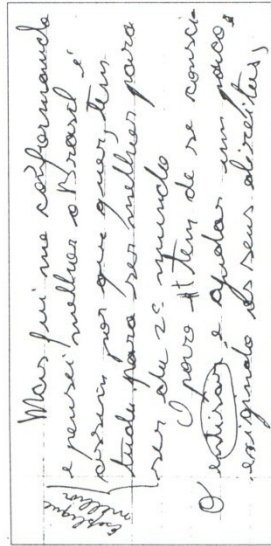 Mas fui me conformando
e pensei melhor o Brasil é
assim por que quer, tem
tudo para ser melhor para
ser de 2º mundo
O povo tem de se consci-
entisar e ajudar um pouco,
exigindo os seus direitos,
Explique
melhor